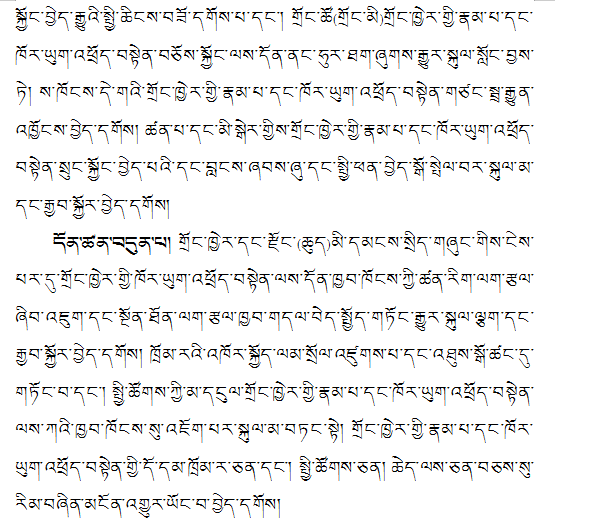 སྐྱོང་བྱེད་རྒྱུའི་སྤྱི་ཆིངས་བཟོ་དགོས་པ་དང་། གྲོང་ཚོ(གྲོང་མི)གྲོང་ཁྱེར་གྱི་རྣམ་པ་དང་
ཁོར་ཡུག་འཕྲོད་བསྟེན་བཅོས་སྐྱོང་ལས་དོན་ནང་ཧུར་ཐག་ཞུགས་རྒྱུར་སྐུལ་སློང་བྱས་
ཏེ། ས་ཁོངས་དེ་གའི་གྲོང་ཁྱེར་གྱི་རྣམ་པ་དང་ཁོར་ཡུག་འཕྲོད་བསྟེན་གཙང་སྦྲ་རྒྱུན་
འཁྱོངས་བྱེད་དགོས། ཚན་པ་དང་མི་སྒེར་གྱིས་གྲོང་ཁྱེར་གྱི་རྣམ་པ་དང་ཁོར་ཡུག་འཕྲོད་
བསྟེན་སྲུང་སྐྱོང་བྱེད་པའི་དང་བླངས་ཞབས་ཞུ་དང་སྤྱི་ཕན་བྱེད་སྒོ་སྤེལ་བར་སྐུལ་མ་
དང་རྒྱབ་སྐྱོར་བྱེད་དགོས།
དོན་ཚན་བདུན་པ། གྲོང་ཁྱེར་དང་རྫོང་(ཆུད)མི་དམངས་སྲིད་གཞུང་གིས་ངེས་
པར་དུ་གྲོང་ཁྱེར་གྱི་ཁོར་ཡུག་འཕྲོད་བསྟེན་ལས་དོན་ཁྱབ་ཁོངས་ཀྱི་ཚན་རིག་ལག་རྩལ་
ཞིབ་འཇུག་དང་སྔོན་ཐོན་ལག་རྩལ་ཁྱབ་གདལ་བེད་སྤྱོད་གཏོང་རྒྱུར་སྐུལ་ལྕག་དང་
རྒྱབ་སྐྱོར་བྱེད་དགོས། ཁྲོམ་རའི་འཁོར་སྐྱོད་ལམ་སྲོལ་འཛུགས་པ་དང་འཐུས་སྒོ་ཚང་དུ་
གཏོང་བ་དང་། སྤྱི་ཚོགས་ཀྱི་མ་དངུལ་གྲོང་ཁྱེར་གྱི་རྣམ་པ་དང་ཁོར་ཡུག་འཕྲོད་བསྟེན་
ལས་ཀའི་ཁྱབ་ཁོངས་སུ་འཇོག་པར་སྐུལ་མ་བཏང་སྟེ། གྲོང་ཁྱེར་གྱི་རྣམ་པ་དང་ཁོར་
ཡུག་འཕྲོད་བསྟེན་གྱི་དོ་དམ་ཁྲོམ་ར་ཅན་དང་། སྤྱི་ཚོགས་ཅན། ཆེད་ལས་ཅན་བཅས་སུ་
རིམ་བཞིན་མངོན་འགྱུར་ཡོང་བ་བྱེད་དགོས།